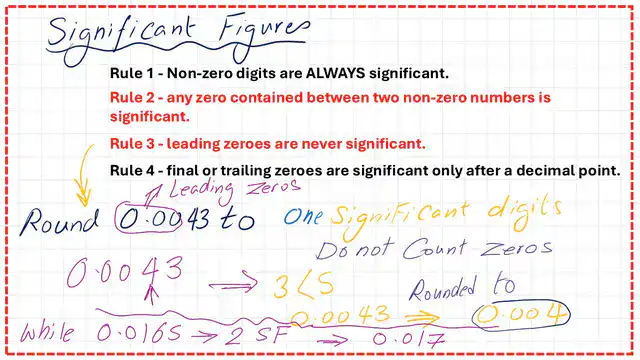 Significant Figures
Rule 1 - Non-zero digits are ALWAYS significant.
Rule 2 - any zero contained between two non-zero numbers is
significant.
Rule 3 - leading zeroes are never significant.
Rule 4 - final or trailing zeroes are significant only after a decimal point.
Leading zeros
Round 0.0043 to One Significant digits
Do not Count zeros
0.0043 ⇒ 3<5 Rounded to
0.0043 ⇒ 0.004
while 0.0165 → 2 SF ⇒ 0.017